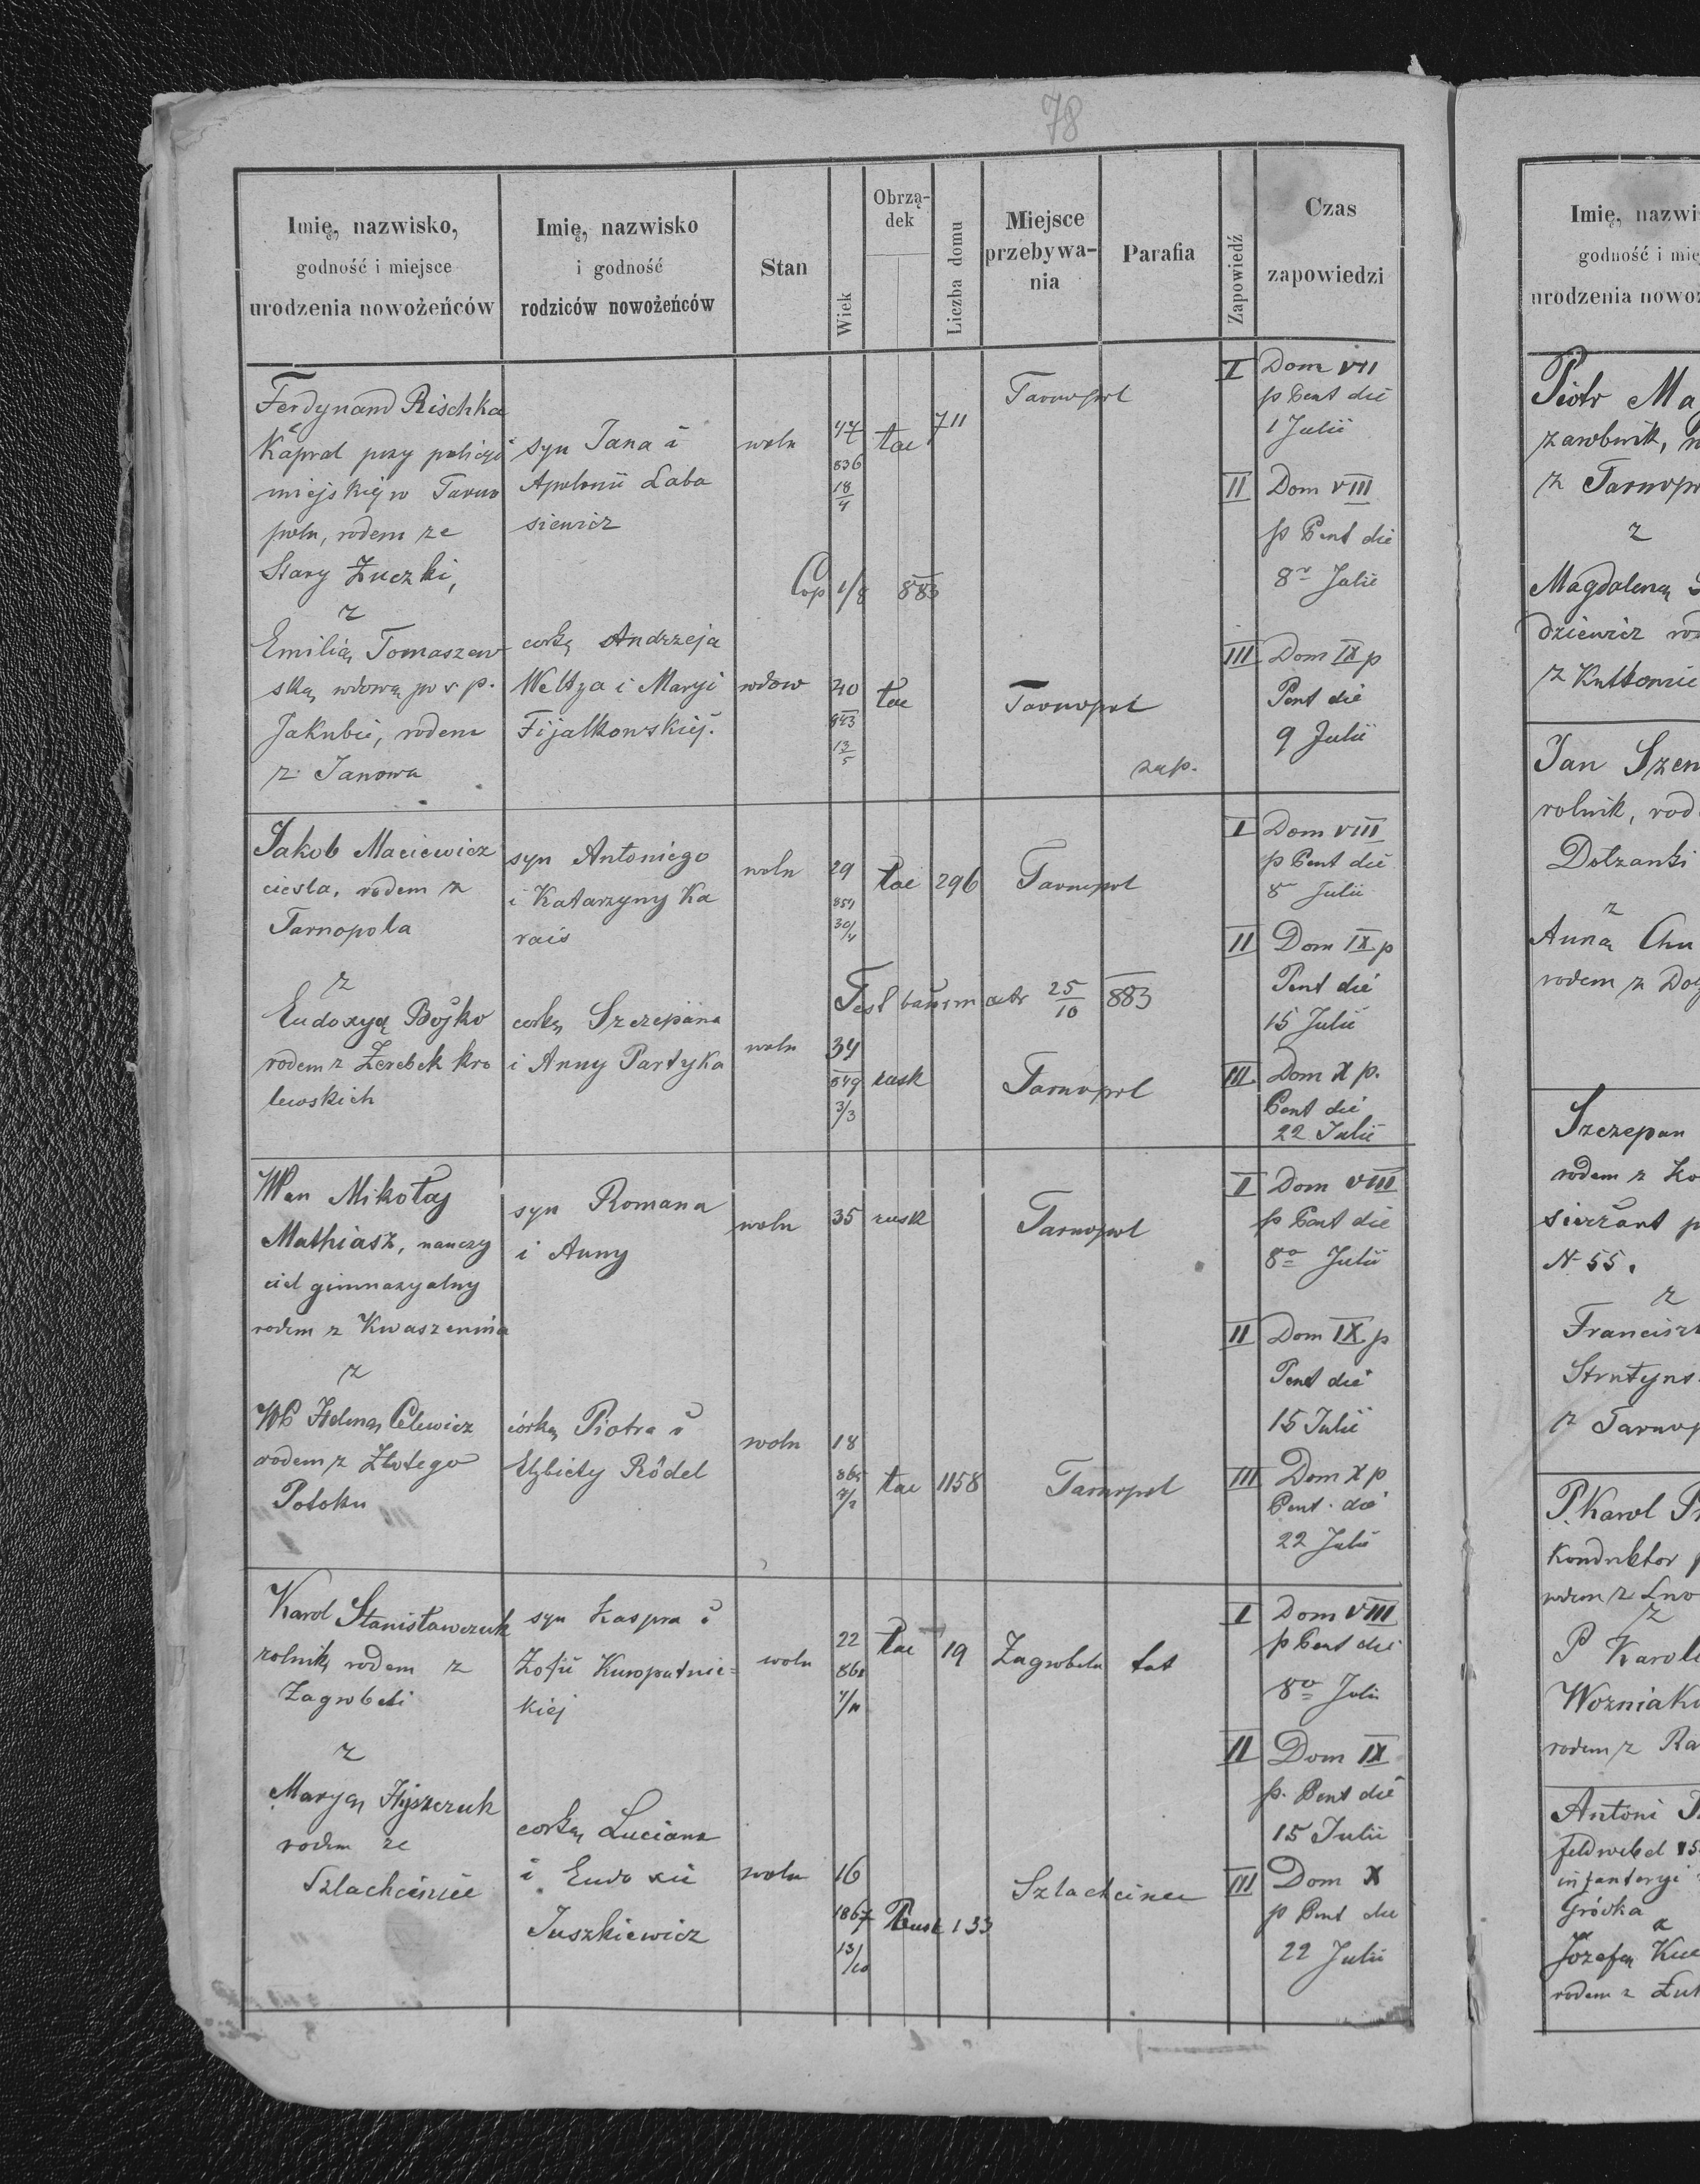 78
Imię, nazwisko,
godność i miejsce
urodzenia nowożeńców
Imię, nazwisko
i godność
rodziców nowożeńców
Stan
Wiek
Obrzą-
dek
Liczba domu
Miejsce
przebywa-
nia
Parafia
Zapowiedź
Czas
zapowiedzi
Ferdynand Rischka
Kapral przy policyi
miejskiej w Tarno
polu, rodem ze
Stary Żuczki,
z
Emilią Tomaszew
ską wdową po ś p.
Jakubie, rodem
z Janowa
syn Jana i
Apolonii Laba
siewicz
corką Andrzeja
Weltza i Maryi
Fijałkowskiej.
woln
Cop 1/8 883
wdow
47
836
18
4
40
843
13
5
łac
łac
711
Tarnopol
Tarnopol
zap.
I Dom VII
p Pent die
1 Julii
II Dom VIII
p Pent die
8º Julii
III Dom IX p
Pent die
9 Julii
Jakob Maciewicz
ciesla, rodem z
Tarnopola
z
Eudoxyą Bojko
rodem z Zerebek kro
lewskich
syn Antoniego
i Katarzyny Ka
rais
corką Szczepana
i Anny Partyka
woln
woln
29
854
30/4
34
849
3/3
łac
rusk
296
Tarnopol
Test 25/10 883
Tarnopol
I Dom VIII
p Pent die
8 Julii
II Dom IX p
Pent die
15 Julii
III Dom X p.
Pent die
22 Julii
Wen Mikołaj
Mathiasz, nauczy
ciel gimnazyalny
rodem z Kwaszenina
z
Helena Celewicz
rodem z Złotego
Potoku
syn Romana
i Anny
córką Piotra i
Elzbiety Rödel
woln
woln
35
18
865
rusk
łac
1158
Tarnopol
Tarnopol
I Dom VIII
p Pent die
8º Julii
II Dom IX p
Pent die
15 Julii
III Dom X p
Pent. die
22 Julii
Karol Stanisławczuk
rolnik, rodem z
Zagrobeli
z
Maryą Hyszczuk
rodem ze
Szlachciniec
syn Kaspra i
Zofii Kuropatnic=
kiej
corką Luciana
i Eudoxii
Juszkiewicz
woln
woln
22
16
1867
13/10
łac
rusk
19
133
Zagrobela
łat
Szlachcince
I Dom VIII
p Pent die
8º Julii
II Dom IX
p. Pent die
15 Julii
III Dom X
p Pent die
22 Julii
Imię, nazwi
godność i mie
urodzenia nowoż
Piotr Ma
zarobnik,
z Tarnopo
z
Magdaleną
dziewicz ro
Jan Szem
rolnik, rod
z
Anną Chu
rodem z Doł
Szczepan
rodem z Ko
sierżant p
N 55.
z
Francisz
Strutyns
z Tarnop
P. Karol
Konduktor
rodem z Lwo
z
P Karoli
Wozniak
rodem z Ra
Antoni
feldwebel 15
infanteryi
Gródka
z
Józefą
rodem z